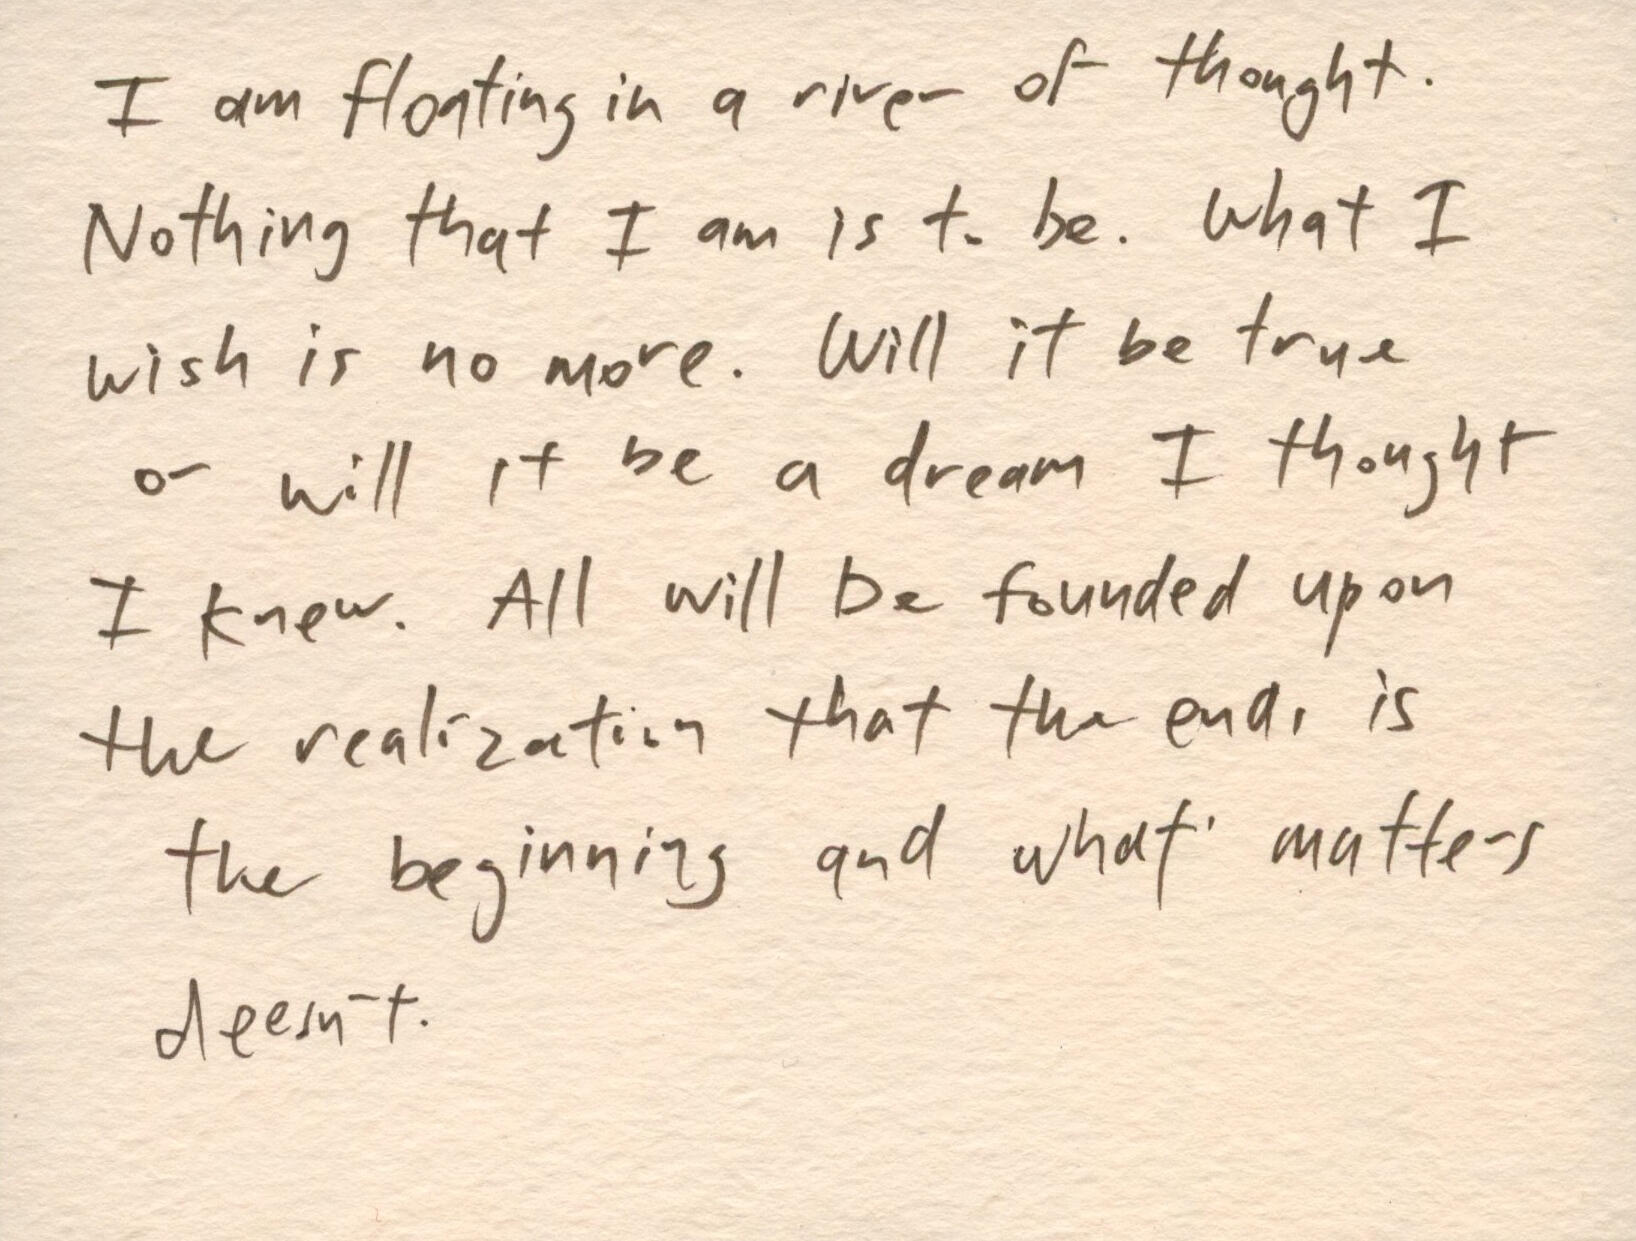 I am floating in a river of thought.
Nothing that I am is to be. What I
wish is no more. Will it be true
or will it be a dream I thought
I knew. All will be founded upon
the realization that the end, is
the beginning and what matters
doesn't.